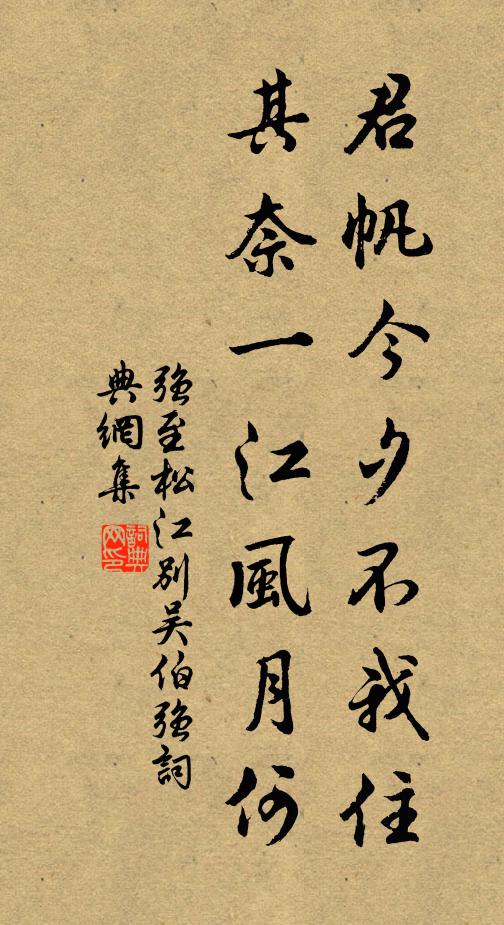 君帆今夕不我住
其奈一江風月何
強至松江別吴伯強詞
典網集
詞典
网印